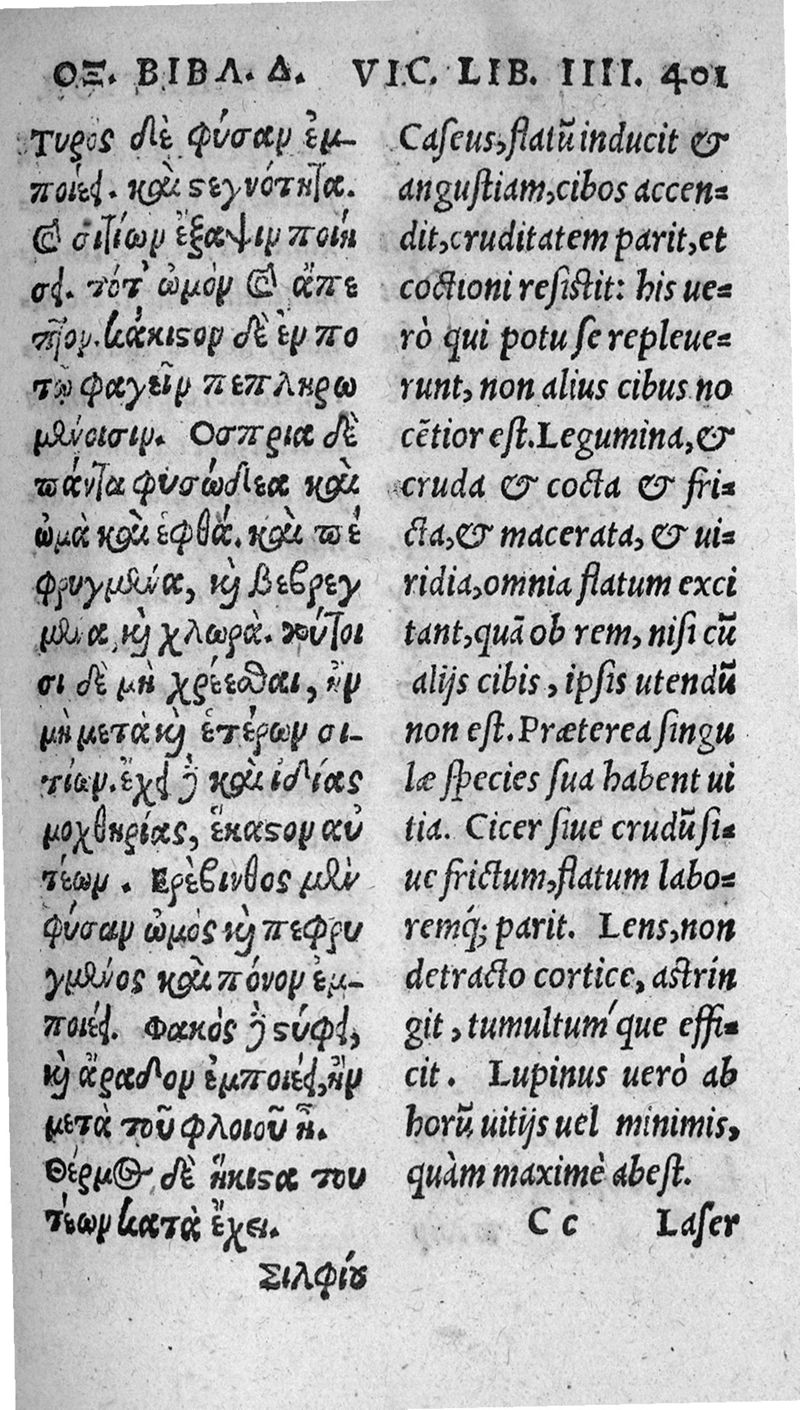 ΟΞ. ΒΙΒΛ. Δ. VIC. LIB. IIII. 401
Τυρὸς δὲ φύσαν ἐμ-
ποιέει. καὶ στεγνότητα.
καὶ σιτίων ἔξαψιν ποιή
σει. τότ' ὠμὸν καὶ ἄπε
πτον. κάκιστον δὲ ἐν πο
τῷ φαγεῖν πεπληρω
μένοισιν. Οσπρια δὲ
πάντα φυσώδεα καὶ
ὠμὰ καὶ ἑφθά. καὶ πε
φρυγμένα, καὶ βεβρεγ
μένα καὶ χλωρὰ. τούτοι
σι δὲ μὴ χρέεσθαι, ἢν
μὴ μετὰ καὶ ἑτέρων σι-
τίων. ἔχει δὲ καὶ ἰδίας
μοχθηρίας, ἕκαστον αὐ
τέων. Ερέβινθος μὲν
φύσαν ὠμὸς καὶ πεφρυ
γμένος καὶ πόνον ἐμ-
ποιέει. Φακὸς δὲ στύφει,
καὶ ἄραδον ἐμποιέει, ἢν
μετὰ τοῦ φλοιοῦ ᾖ.
Θέρμος δὲ ἥκιστα του
τέων κατὰ ἔχει.
Σιλφίου
Caseus, flatū inducit &
angustiam, cibos accen=
dit, cruditatem parit, et
coctioni resistit: his ue=
rò qui potu se repleue=
runt, non alius cibus no
cētior est. Legumina, &
cruda & cocta & fri=
cta, & macerata, & ui=
ridia, omnia flatum exci
tant, quā ob rem, nisi cū
alijs cibis, ipsis utendū
non est. Præterea singu
læ species sua habent ui
tia. Cicer siue crudū si=
ue frictum, flatum labo=
remq́; parit. Lens, non
detracto cortice, astrin
git, tumultum'que effi=
cit. Lupinus uerò ab
horū uitijs uel minimis,
quàm maximè abest.
C c Laser